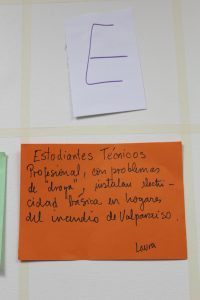 E
Estudiantes Técnicos
Profesional, con problemas
de "droga", instalan electri-
cidad básica en hogares
del incendio de Valparaíso.
Laura